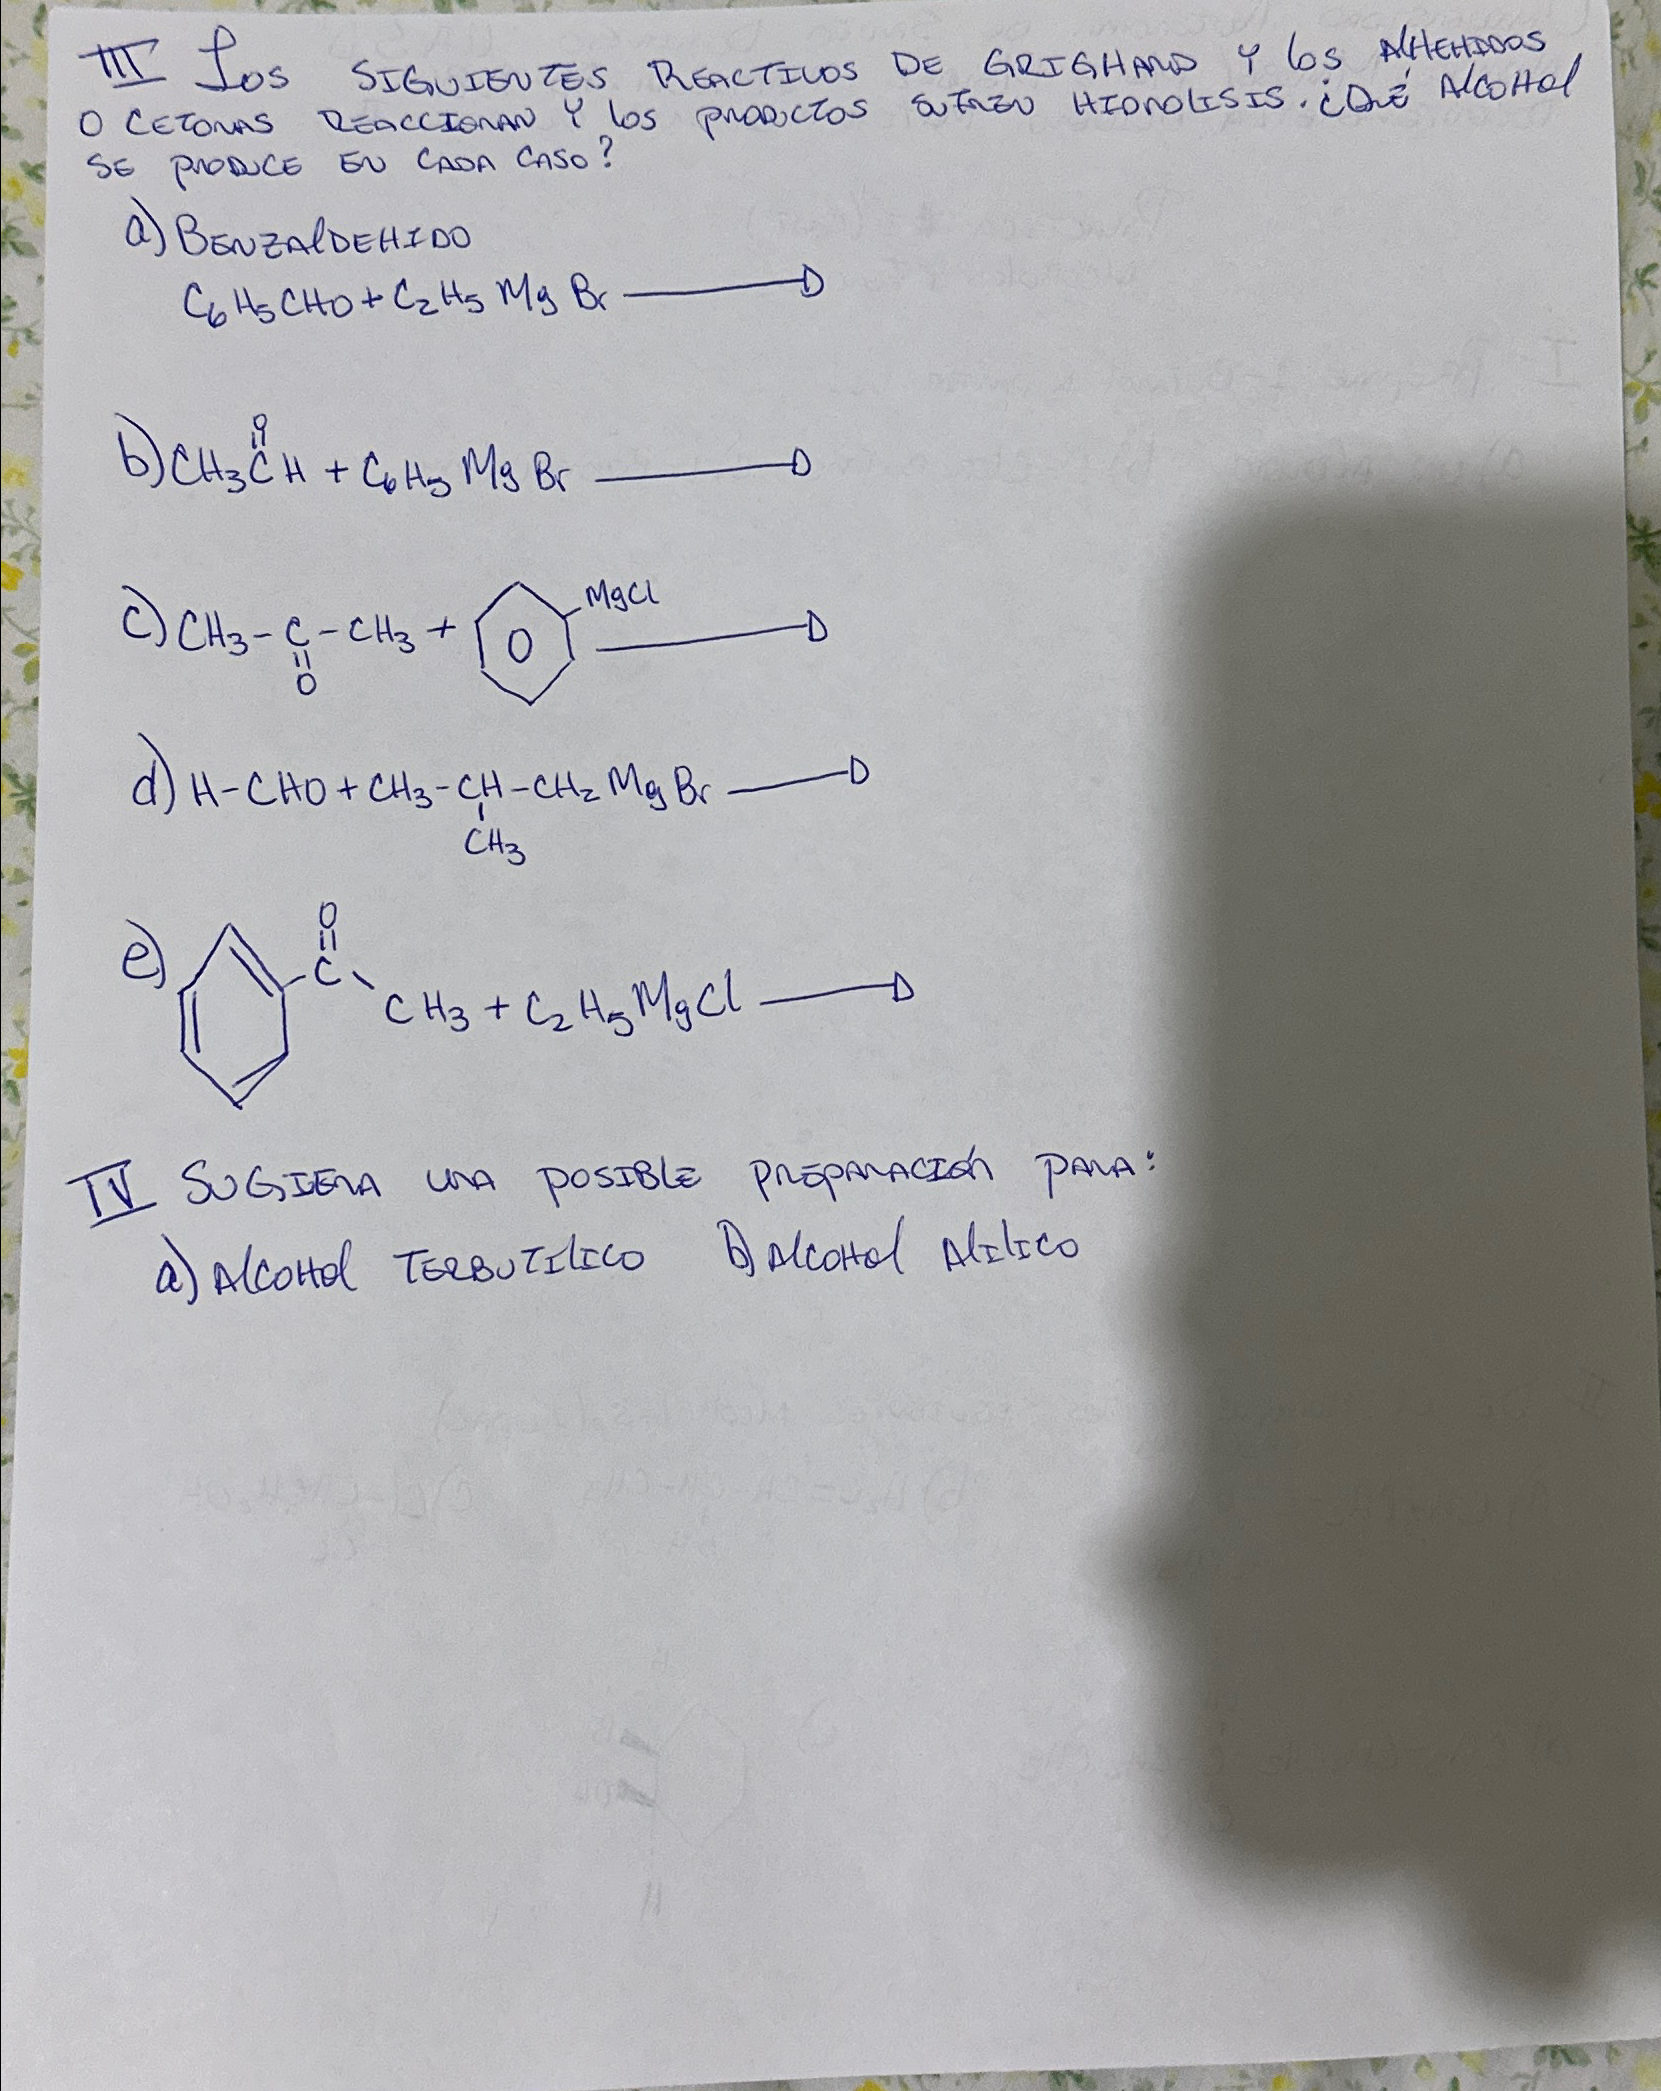 III Los SIGUIENTES REACTIVOS DE GRIGHARD Y los AlHEHIDOS
O CETONAS REACCIONAN Y los PRODUCTOS SUFREN HIDROLISIS. ¿QUÉ AlCOHOl
SE PRODUCE EN CADA CASO?
a) BENZAlDEHIDO
C₆H₅CHO + C₂H₅MgBr →
O
b) CH₃CH + C₆H₅MgBr →
MgCl
c) CH₃-C-CH₃ + →
O
d) H-CHO + CH₃-CH-CH₂MgBr →
CH₃
O
e) C
CH₃ + C₂H₅MgCl →
IV SUGIERA UNA POSIBLE PREPARACIÓN PARA:
a) AlCOHOl TERBUTIlICO b) AlCOHOl AlIlICO